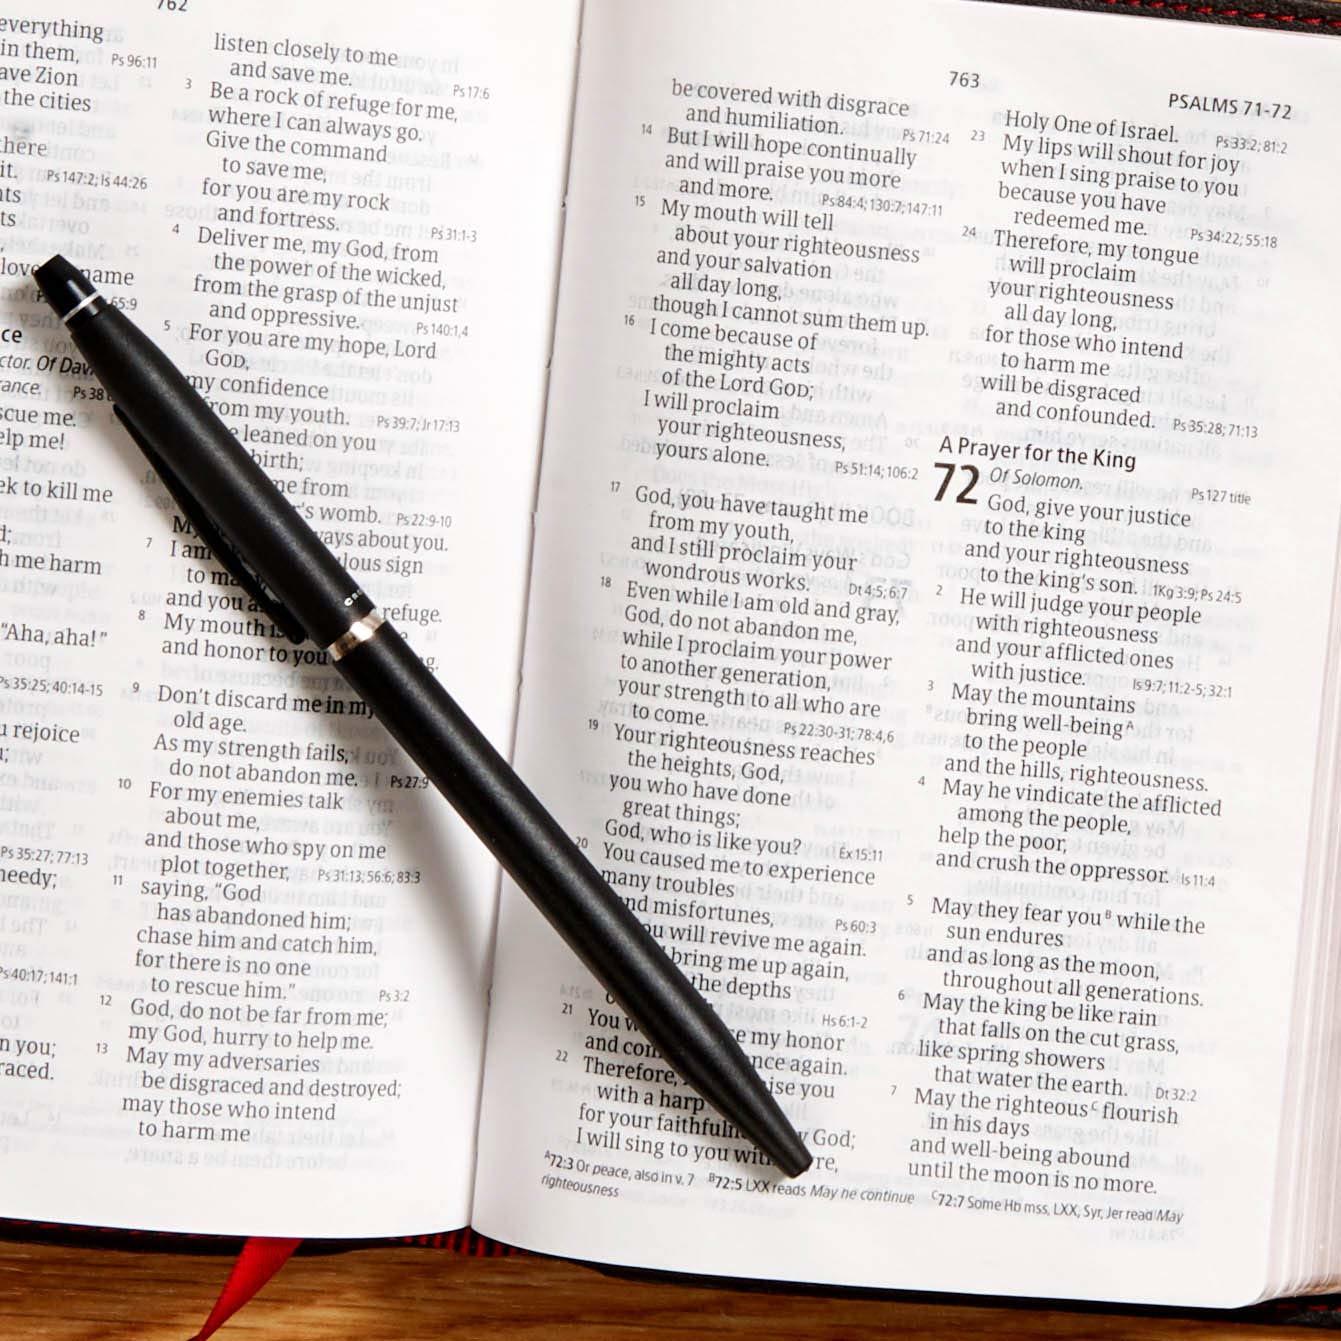 762
everything
in them,
Ps 96:11
ave Zion
the cities
there
it.
Ps 147:2; Is 44:26
nts
ts
love name
65:9
ce
ctor. Of Davi
rance.
Ps 38
scue me.
elp me!
ek to kill me
d;
h me harm
"Aha, aha!"
Ps 35:25; 40:14-15
u rejoice
u;
Ps 35:27; 77:13
needy;
Ps 40:17; 141:1
n you;
raced.
listen closely to me
and save me.
Ps 17:6
3 Be a rock of refuge for me,
where I can always go.
Give the command
to save me,
for you are my rock
and fortress.
Ps 31:1-3
4 Deliver me, my God, from
the power of the wicked,
from the grasp of the unjust
and oppressive.
Ps 140:1,4
5 For you are my hope, Lord
GOD,
my confidence
from my youth.
Ps 39:7; Jr 17:13
e leaned on you
birth;
me from
r's womb.
Ps 22:9-10
My ways about you.
7 I am ulous sign
to ma
and you a refuge.
8 My mouth is
and honor to you
9 Don't discard me in my
old age.
As my strength fails,
do not abandon me.
Ps 27:9
10 For my enemies talk
about me,
and those who spy on me
plot together,
Ps 31:13; 56:6; 83:3
11 saying, "God
has abandoned him;
chase him and catch him,
for there is no one
to rescue him."
Ps 3:2
12 God, do not be far from me;
my God, hurry to help me.
13 May my adversaries
be disgraced and destroyed;
may those who intend
to harm me
CROSS
763
PSALMS 71-72
be covered with disgrace
and humiliation.
Ps 71:24
14 But I will hope continually
and will praise you more
and more.
Ps 84:4; 130:7; 147:11
15 My mouth will tell
about your righteousness
and your salvation
all day long,
though I cannot sum them up.
16 I come because of
the mighty acts
of the Lord GOD;
I will proclaim
your righteousness,
yours alone.
Ps 51:14; 106:2
17 God, you have taught me
from my youth,
and I still proclaim your
wondrous works.
Dt 4:5; 6:7
18 Even while I am old and gray,
God, do not abandon me,
while I proclaim your power
to another generation,
your strength to all who are
to come.
Ps 22:30-31; 78:4,6
19 Your righteousness reaches
the heights, God,
you who have done
great things;
God, who is like you?
Ex 15:11
20 You caused me to experience
many troubles
and misfortunes,
Ps 60:3
u will revive me again.
bring me up again,
the depths
Hs 6:1-2
21 You w e my honor
and com once again.
22 Therefore, ise you
with a harp
for your faithfuln y God;
I will sing to you with re,
Holy One of Israel.
Ps 33:2; 81:2
23 My lips will shout for joy
when I sing praise to you
because you have
redeemed me.
Ps 34:22; 55:18
24 Therefore, my tongue
will proclaim
your righteousness
all day long,
for those who intend
to harm me
will be disgraced
and confounded.
Ps 35:28; 71:13
A Prayer for the King
72 Of Solomon.
Ps 127 title
God, give your justice
to the king
and your righteousness
to the king's son.
1Kg 3:9; Ps 24:5
2 He will judge your people
with righteousness
and your afflicted ones
with justice.
Is 9:7; 11:2-5; 32:1
3 May the mountains
bring well-being A
to the people
and the hills, righteousness.
4 May he vindicate the afflicted
among the people,
help the poor,
and crush the oppressor.
Is 11:4
5 May they fear you B while the
sun endures
and as long as the moon,
throughout all generations.
6 May the king be like rain
that falls on the cut grass,
like spring showers
that water the earth.
Dt 32:2
7 May the righteous C flourish
in his days
and well-being abound
until the moon is no more.
A 72:3 Or peace, also in v. 7 B 72:5 LXX reads May he continue C 72:7 Some Hb mss, LXX, Syr, Jer read May
righteousness